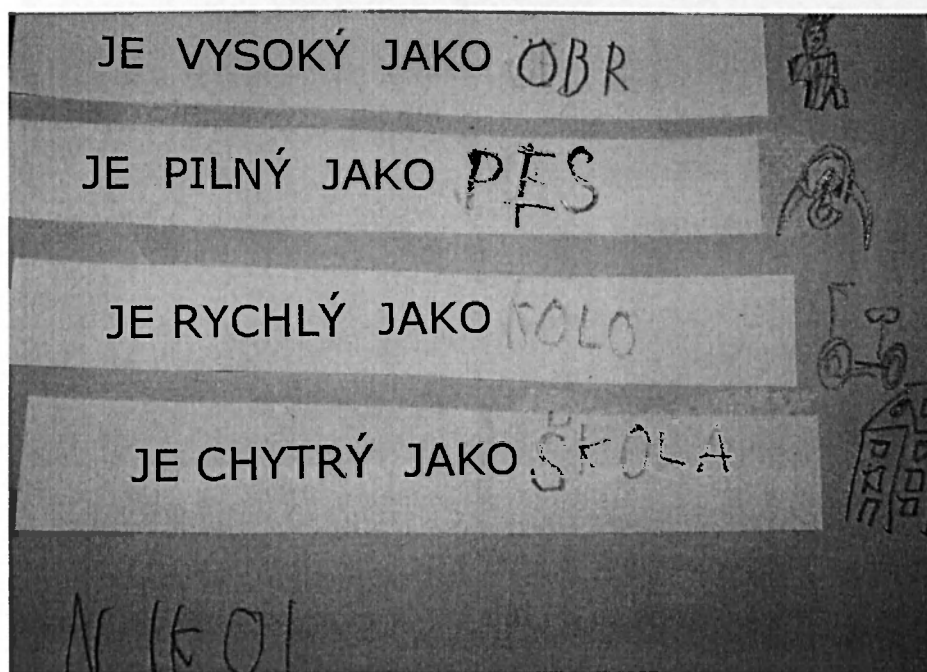 JE VYSOKÝ JAKO OBR
JE PILNÝ JAKO PES
JE RYCHLÝ JAKO KOLO
JE CHYTRÝ JAKO ŠKOLA
NIKOL